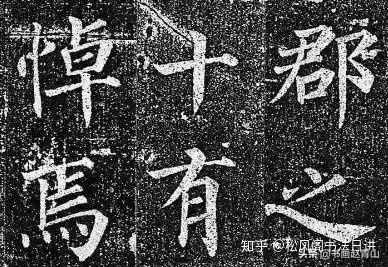 郡之
十有
悼焉
知乎 @松风阁书法日讲